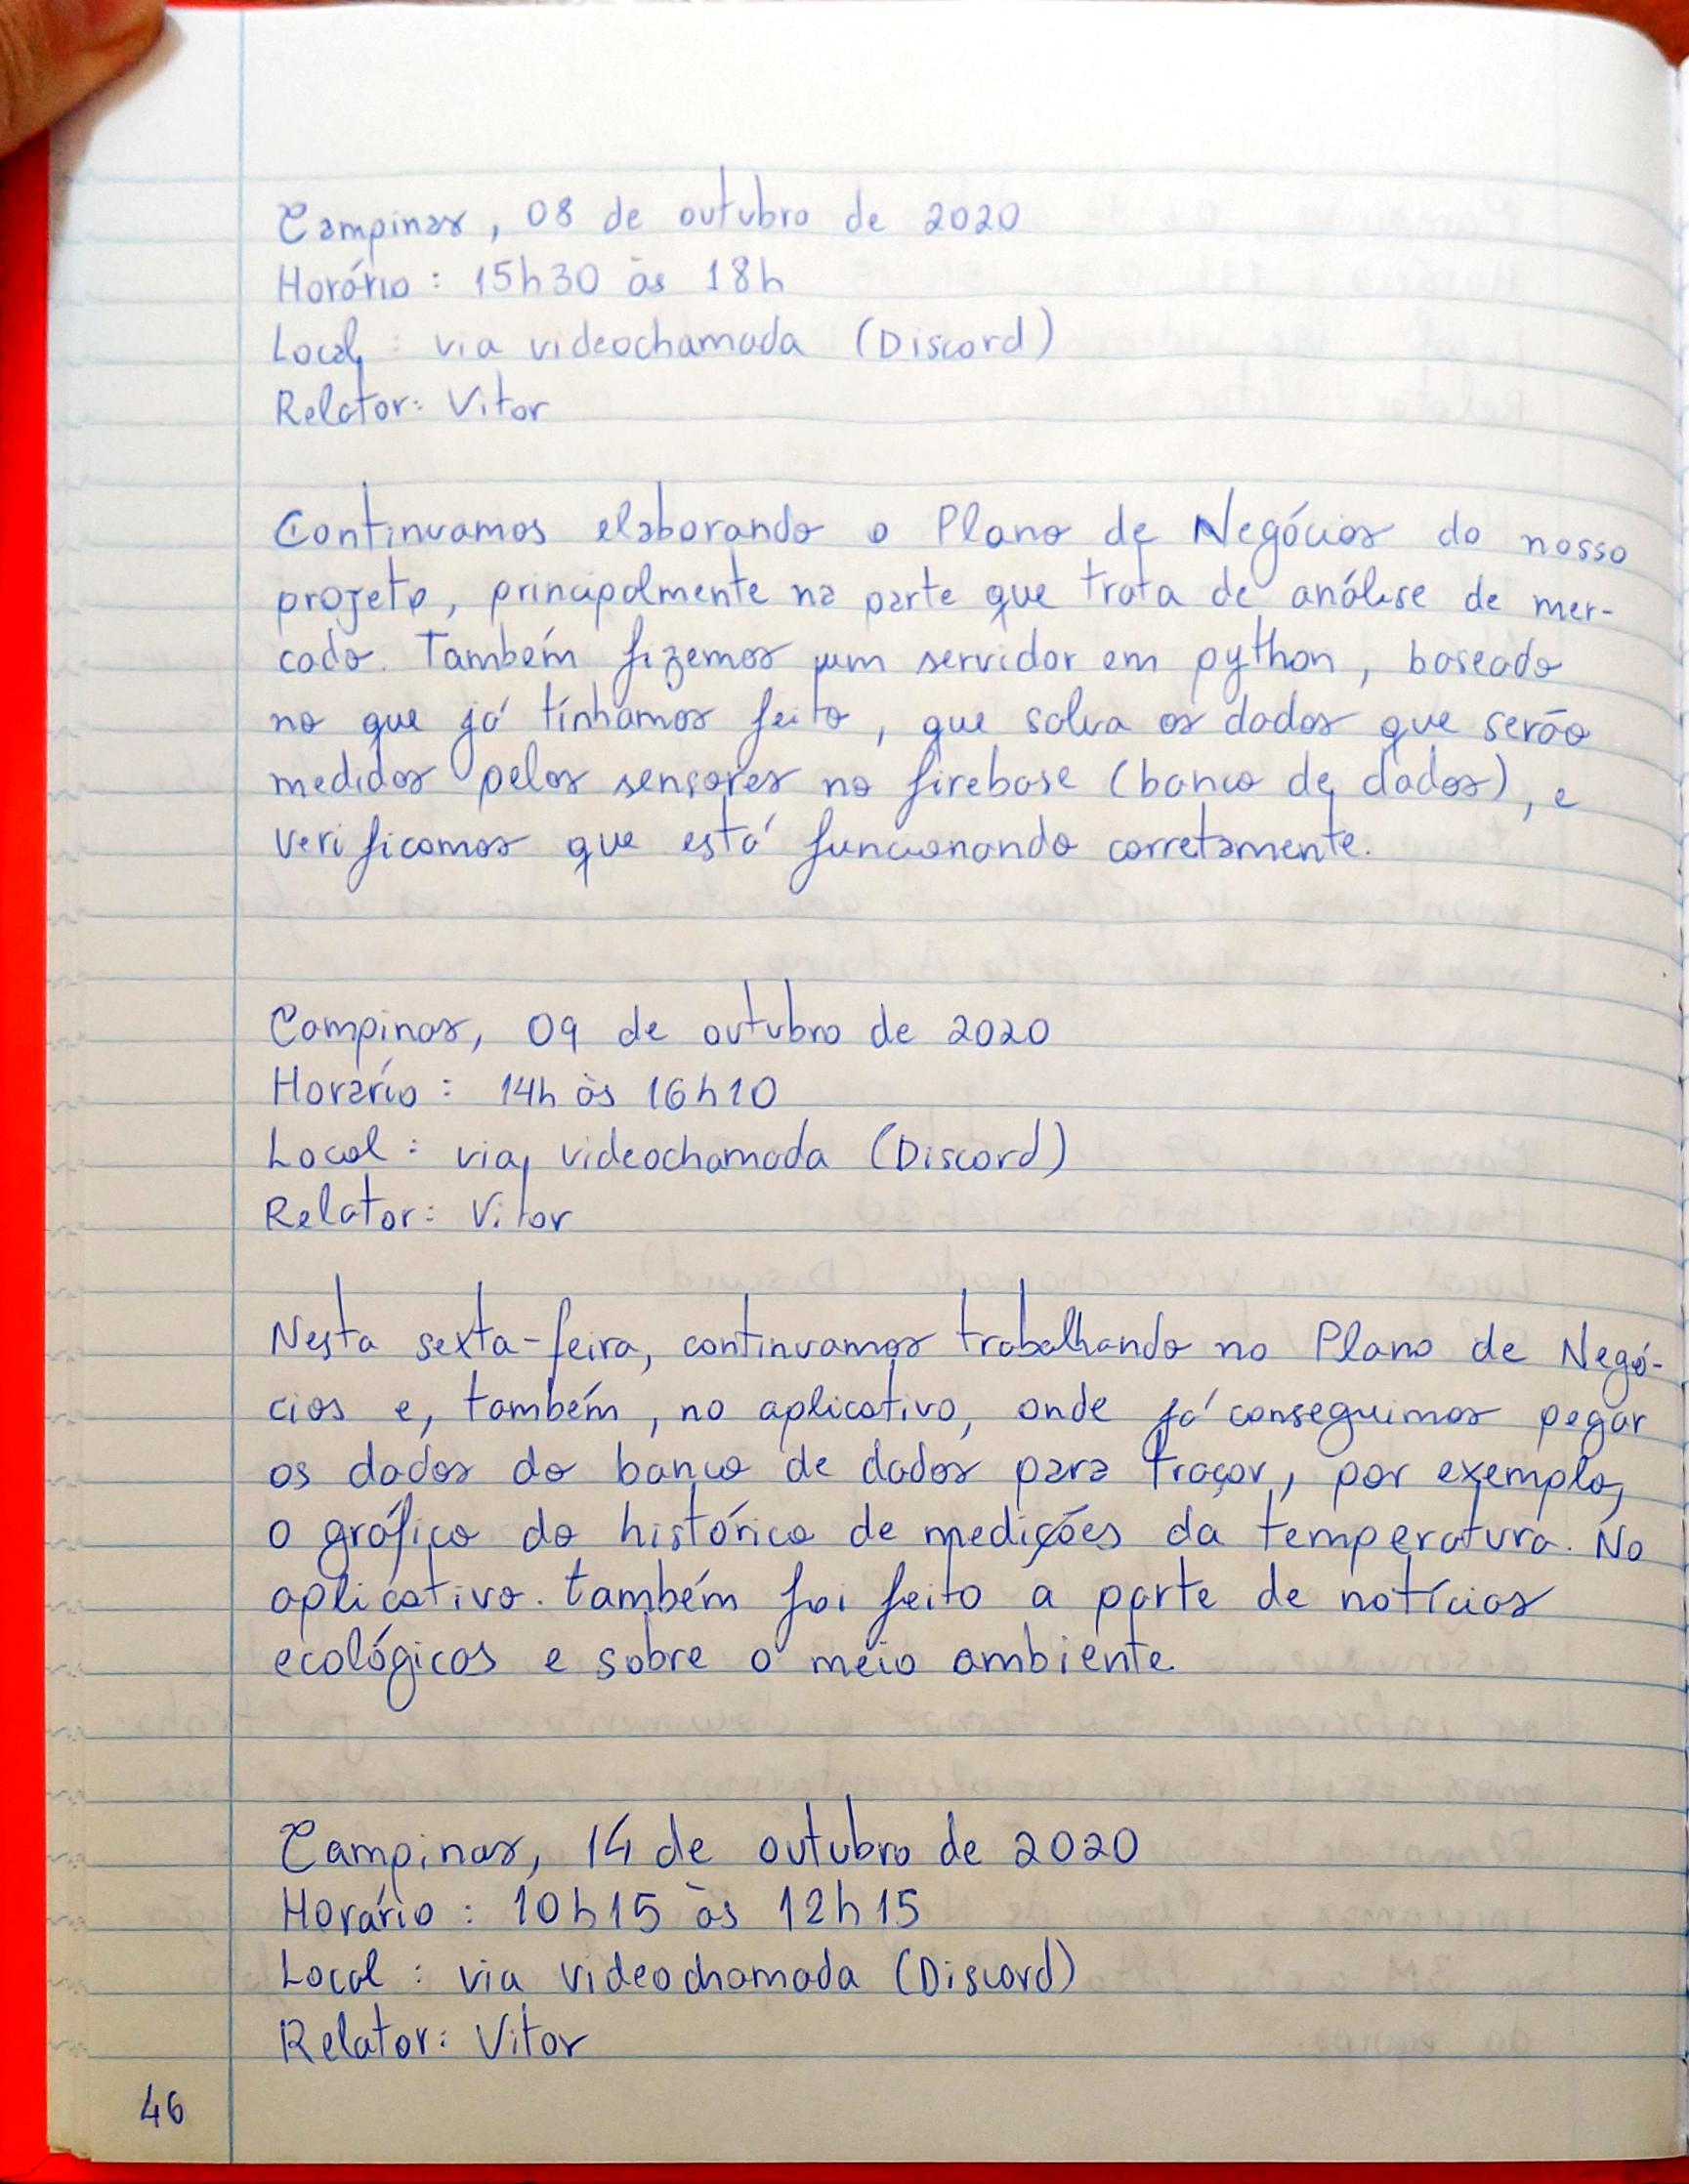 Campinas, 08 de outubro de 2020
Horário: 15h30 às 18h
Local: via videochamada (Discord)
Relator: Vitor
Continuamos elaborando o Plano de Negócios do nosso
projeto, principalmente na parte que trata de análise de mer-
cado. Também fizemos um servidor em python, baseado
no que já tínhamos feito, que salva os dados que serão
medidos pelos sensores no firebase (banco de dados), e
verificamos que está funcionando corretamente.
Campinas, 09 de outubro de 2020
Horário: 14h às 16h10
Local: via videochamada (Discord)
Relator: Vitor
Nesta sexta-feira, continuamos trabalhando no Plano de Negó-
cios e, também, no aplicativo, onde já conseguimos pegar
os dados do banco de dados para traçar, por exemplo,
o gráfico do histórico de medições da temperatura. No
aplicativo. também foi feito a parte de notícias
ecológicas e sobre o meio ambiente
Campinas, 14 de outubro de 2020
Horário: 10h15 às 12h15
Local: via videochamada (Discord)
Relator: Vitor
46